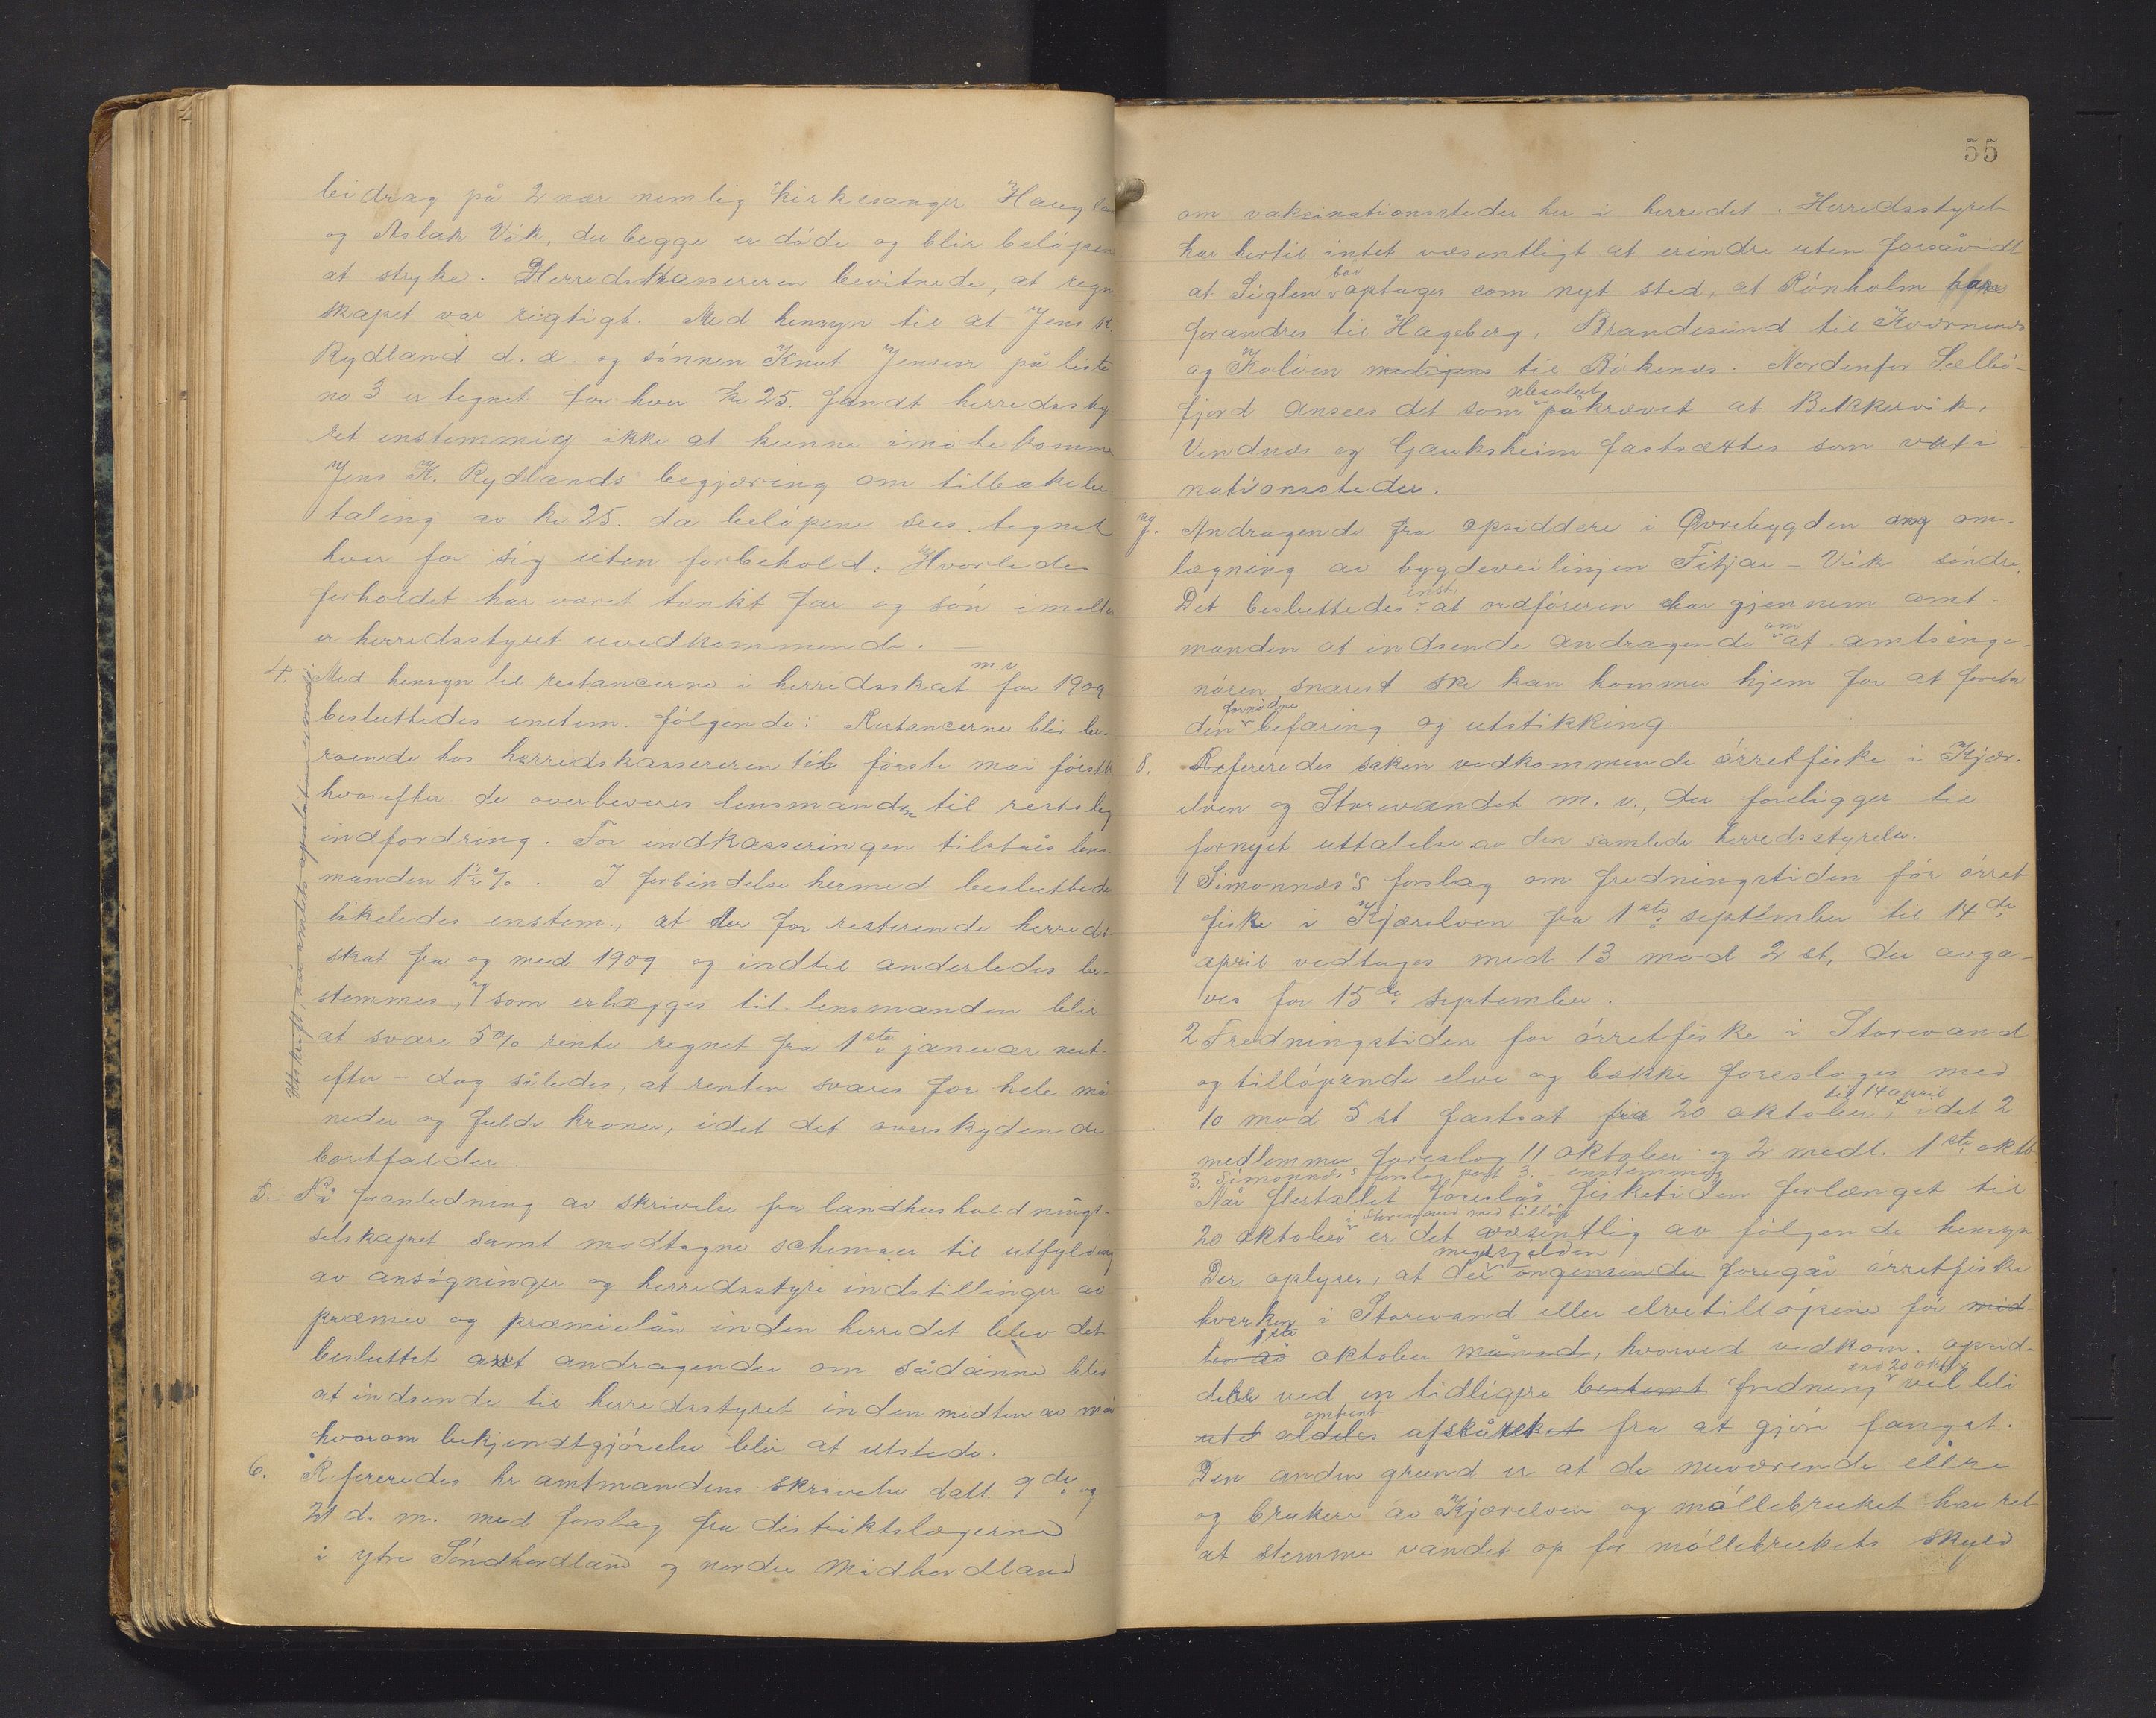 beidrag på 2 nær nemlig kirkesanger Haugla
og Aslak Vik, der begge er døde og blir beløpen
at stryke. Herredskassereren bevitnede, at regn
skapet var rigtigt. Med hensyn til at Jens K.
Rydland d. æ. og sønnen Knut Jensen på liste
no 3 er tegnet for hver kr 25. fandt herredssty-
ret enstemmig ikke at kunne imøtekomme
Jens K. Rydlands begjæring om tilbakebe-
taling av kr 25. da beløpene sees tegnet
hver for sig uten forbehold. Hvorledes
forholdet har været tænkt far og søn imellem
er herredsstyret uvedkommende. —
4. Med hensyn til restancerne i herredsskat m.v. for 1909
besluttedes enstem. følgende: Restancerne blir be-
roende hos herredskassereren til første mai førstk.
hvorefter de overleveres lensmanden til retslig
indfordring. For indkasseringen tilståes lens-
manden 1½ %. I forbindelse hermed besluttedes
likeledes enstem., at der for resterende herreds-
skat fra og med 1909 og indtil anderledes be-
stemmes, som erlægges til lensmanden blir
at svare 5% rente regnet fra 1ste januar næst-
efter – dog således, at renten svares for hele må
neder og fulde kroner, idet det overskydende
bortfalder.
5. På foranledning av skrivelse fra landhusholdnings-
selskapet samt modtagne schemaer til utfylding
av ansøgninger og herredsstyreindstillinger av
præmie og præmielån inden herredet blev det
besluttet at andragender om sådanne blir
at indsende til herredsstyret inden midten av mai
hvorom bekjendtgjørelse blir at utstede.
6. Refereredes hr amtmandens skrivelse datt. 9de og
21 d. m. med forslag fra distriktslægerne
i ytre Søndhordland og nordre Midhordland
55
om vaksinationssteder her i herredet. Herredsstyret
har hertil intet væsentligt at erindre uten forsåvidt
at Siglen bør optages som nyt sted, at Rønholm
forandres til Hageberg, Brandesund til Kværnenes
og Koløen til Bøkenes. Nordenfor Selbø-
fjord ansees det som absolut påkrævet at Bekkervik,
Vendnes og Gauksheim fastsættes som vaxi-
nationssteder.
7. Andragende fra opsiddere i Øvrebygden ang om-
lægning av bygdeveilinjen Fitjar – Vik søndre.
Det besluttedes enst. at ordføreren har gjennem amt-
manden at indsende andragende om at amtsinge-
niøren snarest ske kan kommer hjem for at foreta
den fornødne befaring og utstikking.
8. Refereredes saken vedkommende ørretfiske i Kjær-
elven og Storevandet m. v., der foreligger til
fornyet uttalelse av den samlede herredsstyrelse.
1 Simonnæs's forslag om fredningstiden før ørret
fiske i Kjærelven fra 1ste september til 14de
april vedtages med 13 mod 2 st, der avga-
ves for 15de september.
2 Fredningstiden for ørretfiske i Storevand
og tilløpende elve og bække foreslåges med
10 mod 5 st fastsat fra 20 oktober, til 14 april idet 2
medlemmer foreslog 11 oktober og 2 medl. 1ste oktb
3. Simonnæs's forslag post 3. enstemmig
Når flertallet foreslår fisketiden forlænget til
20 oktober i Storevand med tilløp er det væsentlig av følgende hensyn
Der oplyses, at der meget sjelden ongensinde foregår ørretfiske
hverken i Storevand eller elvetilløpene før mid-
1ste oktober måned, hvorved vedkom. opsid-
dere ved en tidligere bestemt fredning end 20 oktbr vil bli
aldeles omtrent afskåret fra at gjøre fangst.
Den anden grund er at de nuværende eiere
og brukere av Kjærelven og møllebruket har ret
at stemme vandet op for møllebrukets skyld